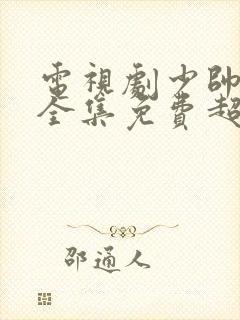 電視劇少帥
全集免費超
邵通人